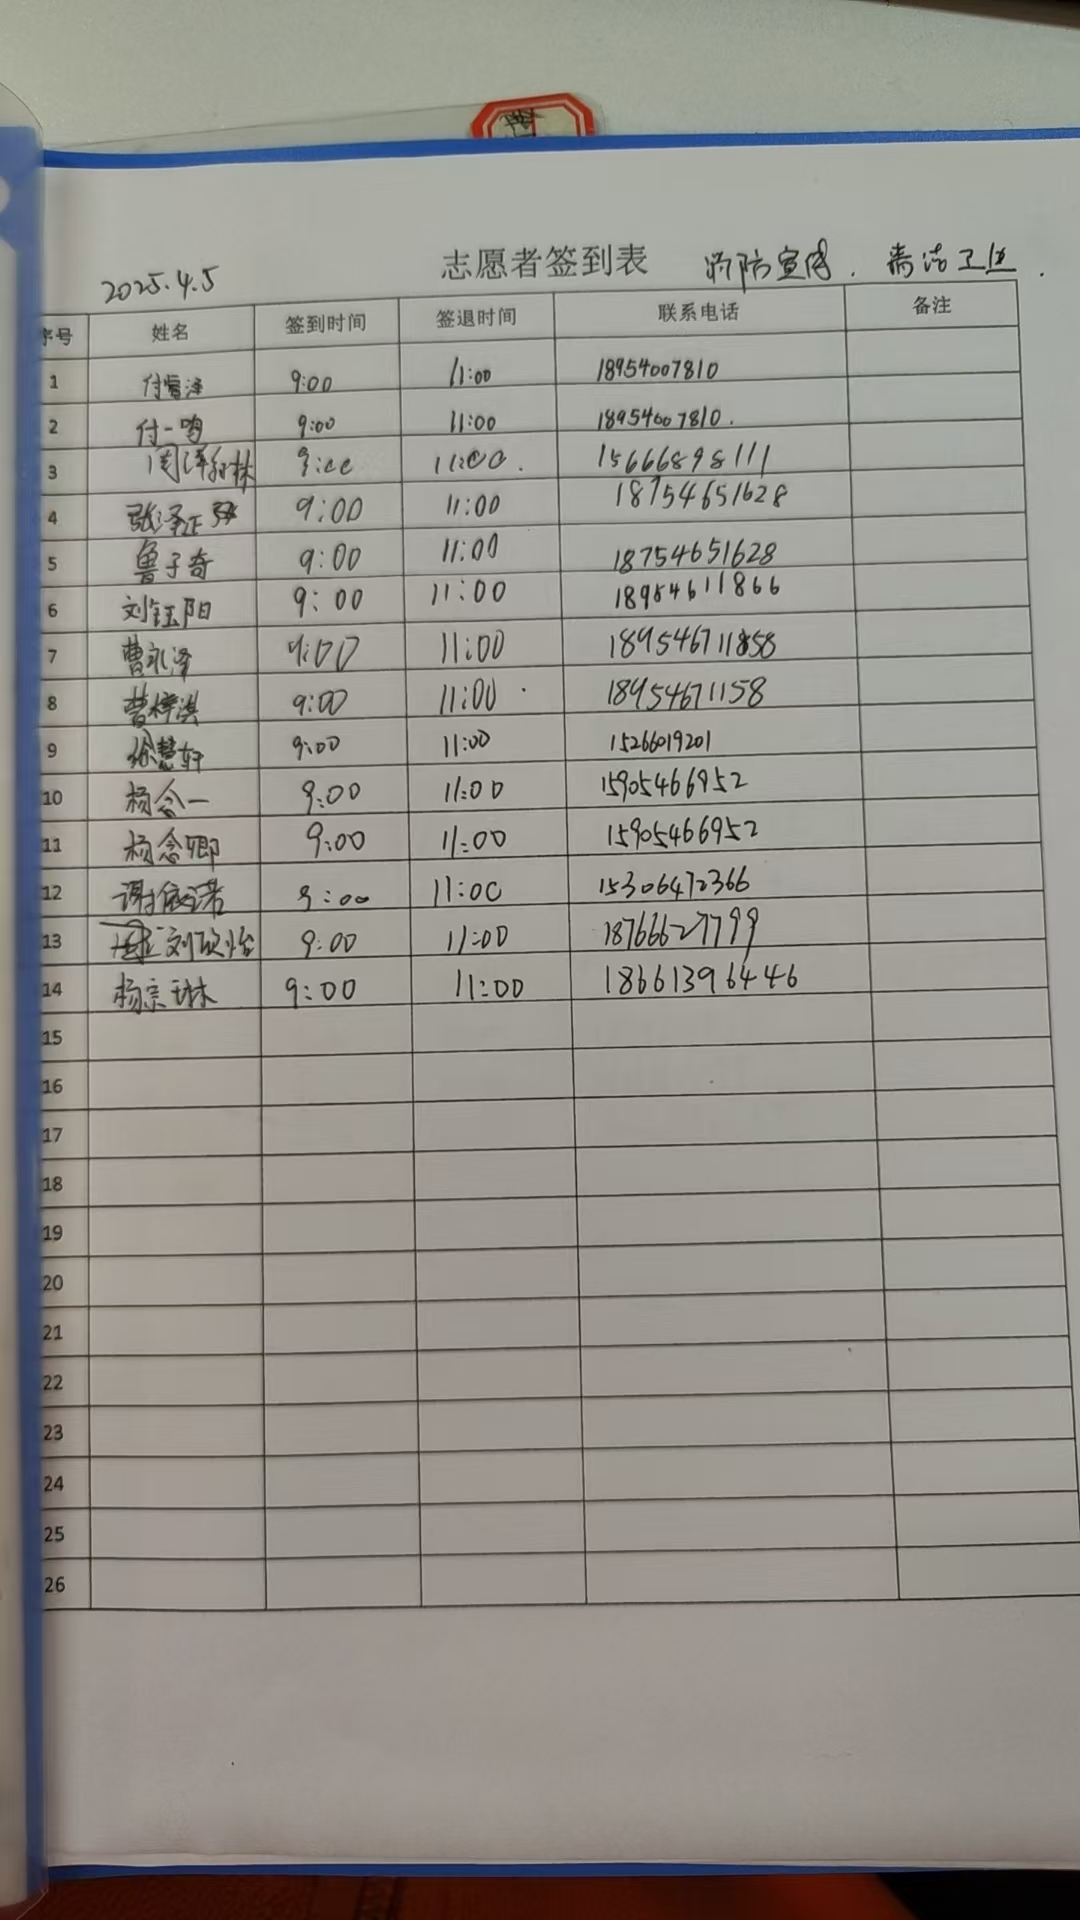 志愿者签到表 消防宣传. 清洁卫生.
2025.4.5
序号 姓名 签到时间 签退时间 联系电话 备注
1 付 泽 9:00 11:00 18954007810
2 付一鸣 9:00 11:00 18954007810.
3 周泽和林 9:00 11:00. 15666898111
4 张泽正 9:00 11:00 18754651628
5 鲁子奇 9:00 11:00 18754651628
6 刘钰阳 9:00 11:00 18954611866
7 曹永泽 9:00 11:00 189546711858
8 曹梓淇 9:00 11:00 18954671158
9 徐慧轩 9:00 11:00 15266019201
10 杨念一 9:00 11:00 15905466952
11 杨念卿 9:00 11:00 15905466952
12 谢依诺 9:00 11:00 15306472366
13 刘欣怡 9:00 11:00 18766627799
14 杨宗琳 9:00 11:00 18661396446
15
16
17
18
19
20
21
22
23
24
25
26